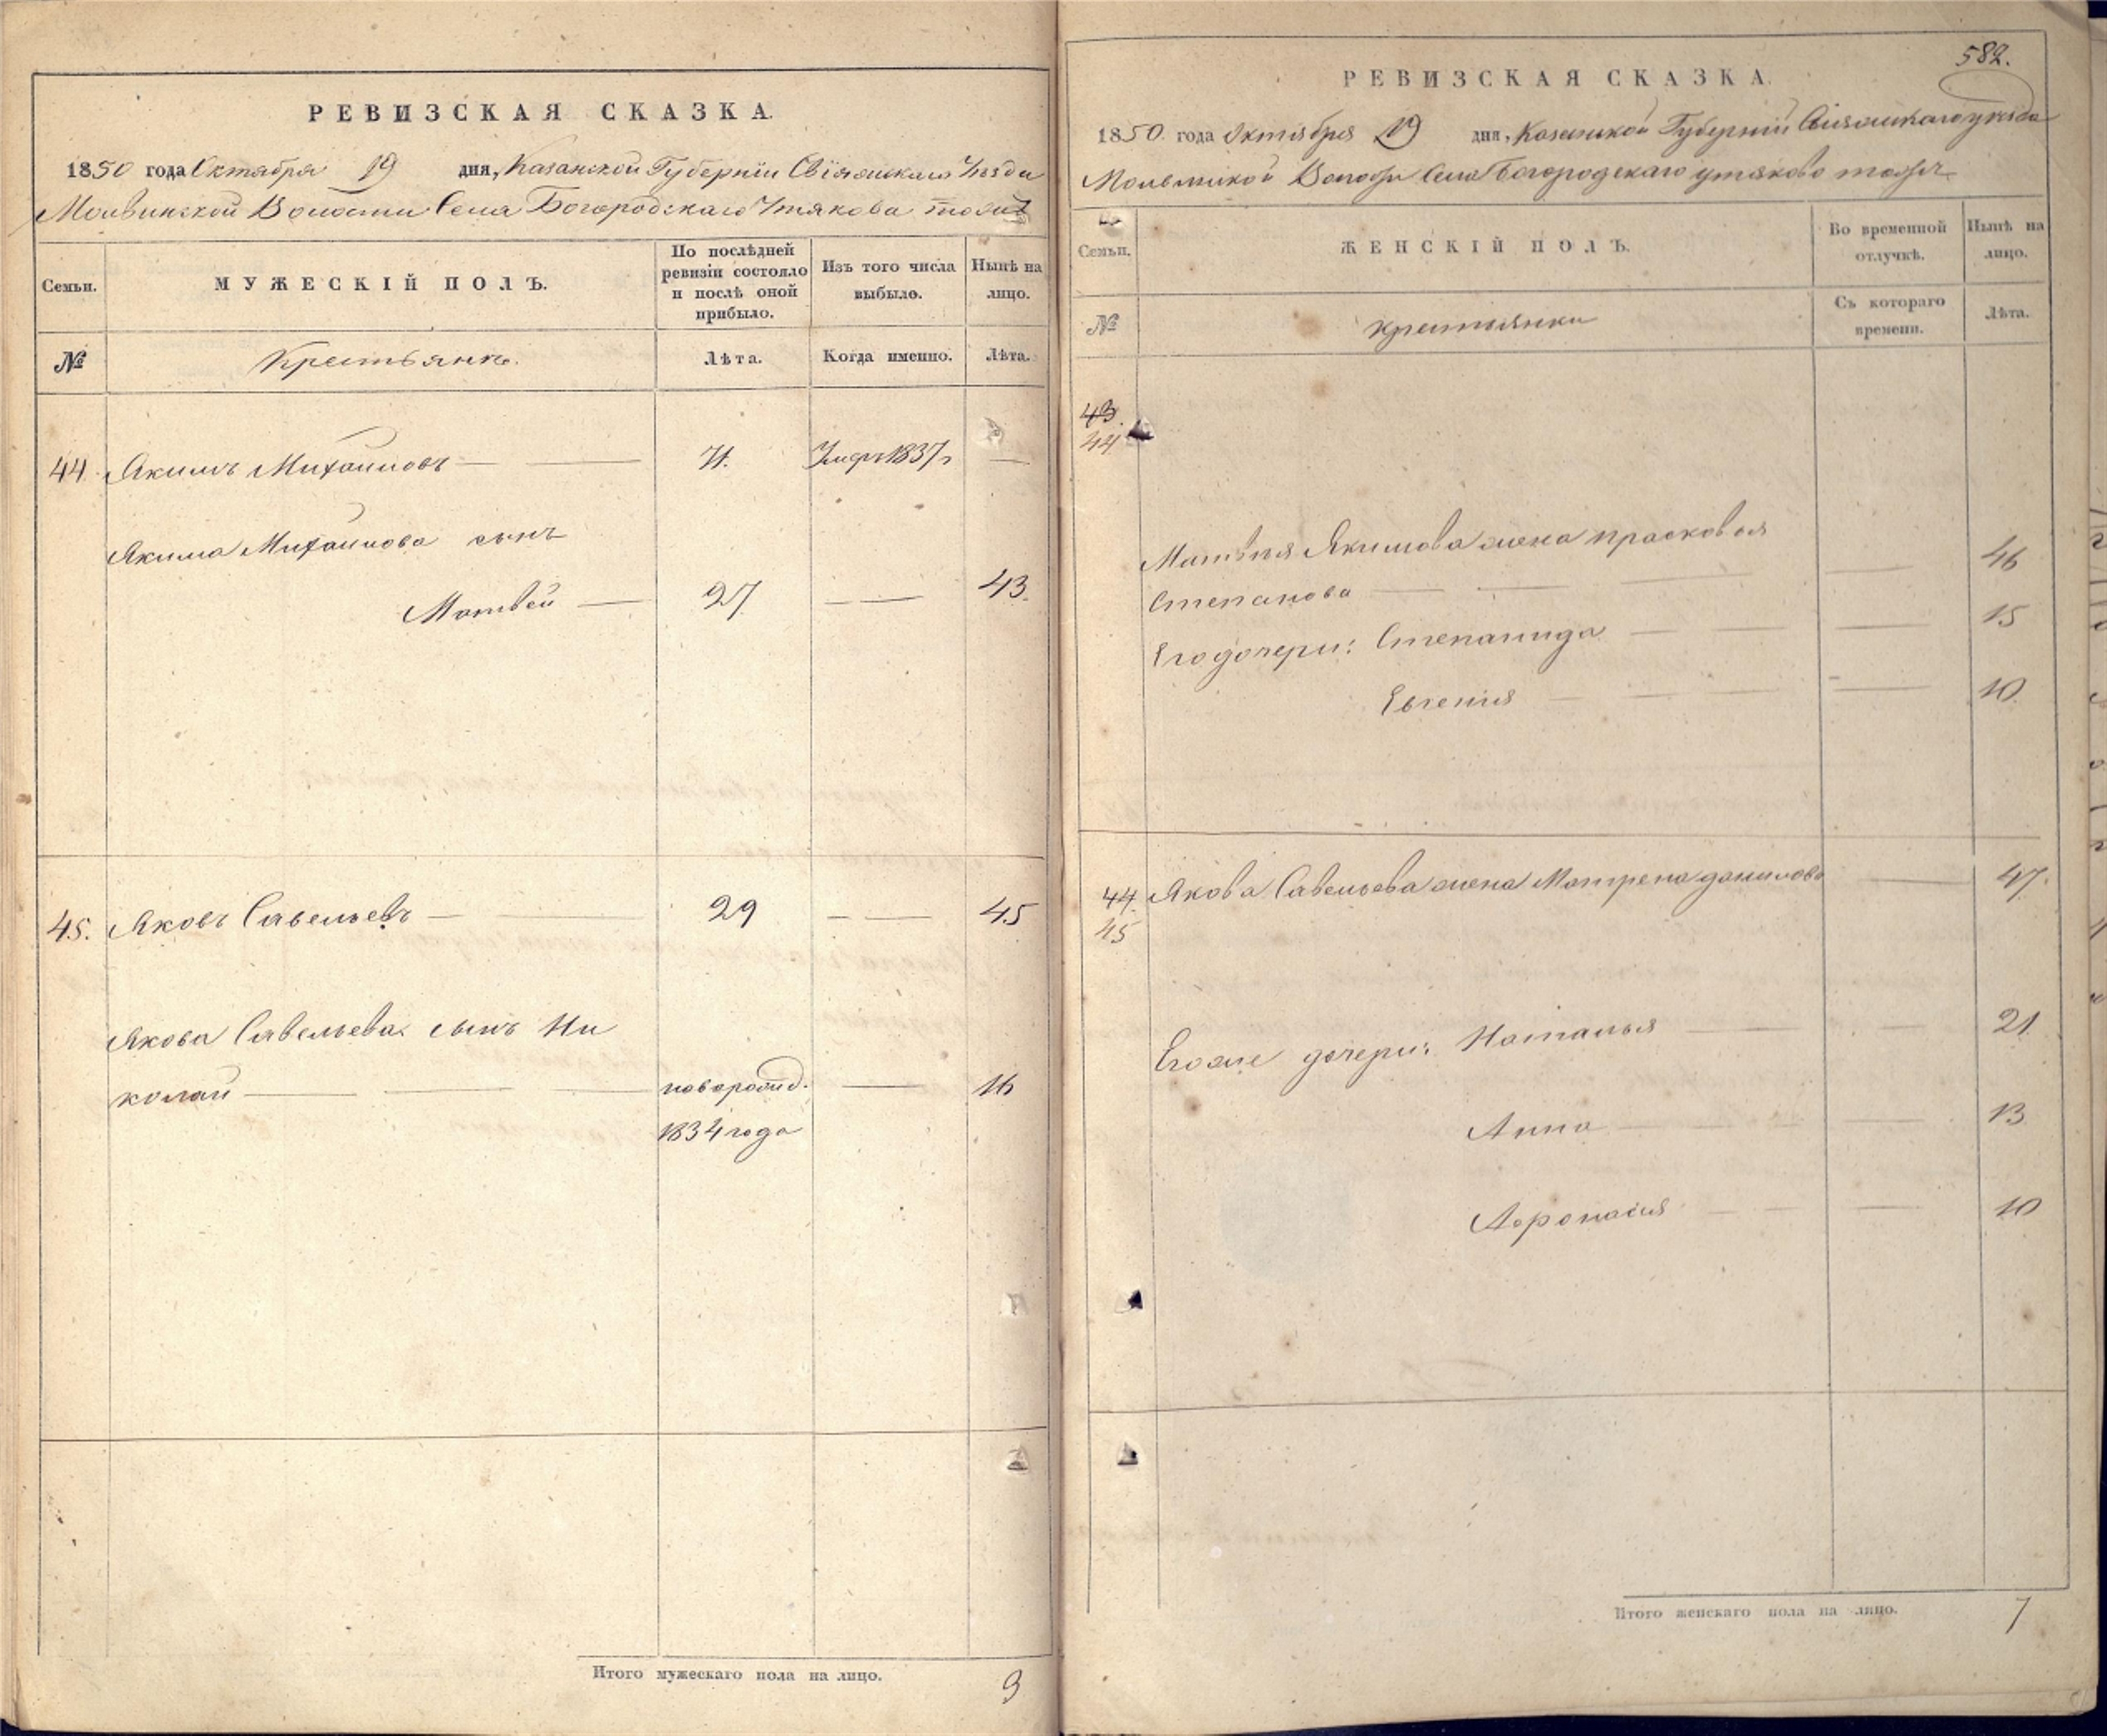 РЕВИЗСКАЯ СКАЗКА.
1850 года Октября 19 дня, Казанской Губернiи Свiяжскаго Уѣзда
Молвинской Волости Села Богородскаго Утякова тожъ
Семьи.
МУЖЕСКІЙ ПОЛЪ.
По послѣдней
ревизіи состояло
и послѣ оной
прибыло.
Изъ того числа
выбыло.
Нынѣ на
лицо.
№
Крестьяне.
Лѣта.
Когда именно.
Лѣта.
44. Якимъ Михайловъ — — 71. Умеръ 1837 —
Якима Михайлова сынъ
Матвей — 27 — — 43.
45. Яковъ Савельевъ — 29 — — 45
Якова Савельева сынъ Ни
колай — — — новорожд. — 16
1834 года
Итого мужескаго пола на лицо. 3
582.
РЕВИЗСКАЯ СКАЗКА.
1850 года Октября 19 дня, Казанской Губернiи Свiяжскаго уѣзда
Села Богородскаго утяково тожъ
Семьи.
ЖЕНСКІЙ ПОЛЪ.
Во временной
отлучкѣ.
Нынѣ на
лицо.
№
крестьянки
Съ котораго
времени.
Лѣта.
43.
44
Матвѣя Якимова жена прасковья
Степанова — — — — 46
Его дочери: Степанида — — — — 15
Евгения — — — — 10.
44. Якова Савельева жена Матрена данилова — 47.
45
Егоже дочери: Наталья — — 21
Анна — — — — 13
Афонасия — — — 10
Итого женскаго пола на лицо. 7